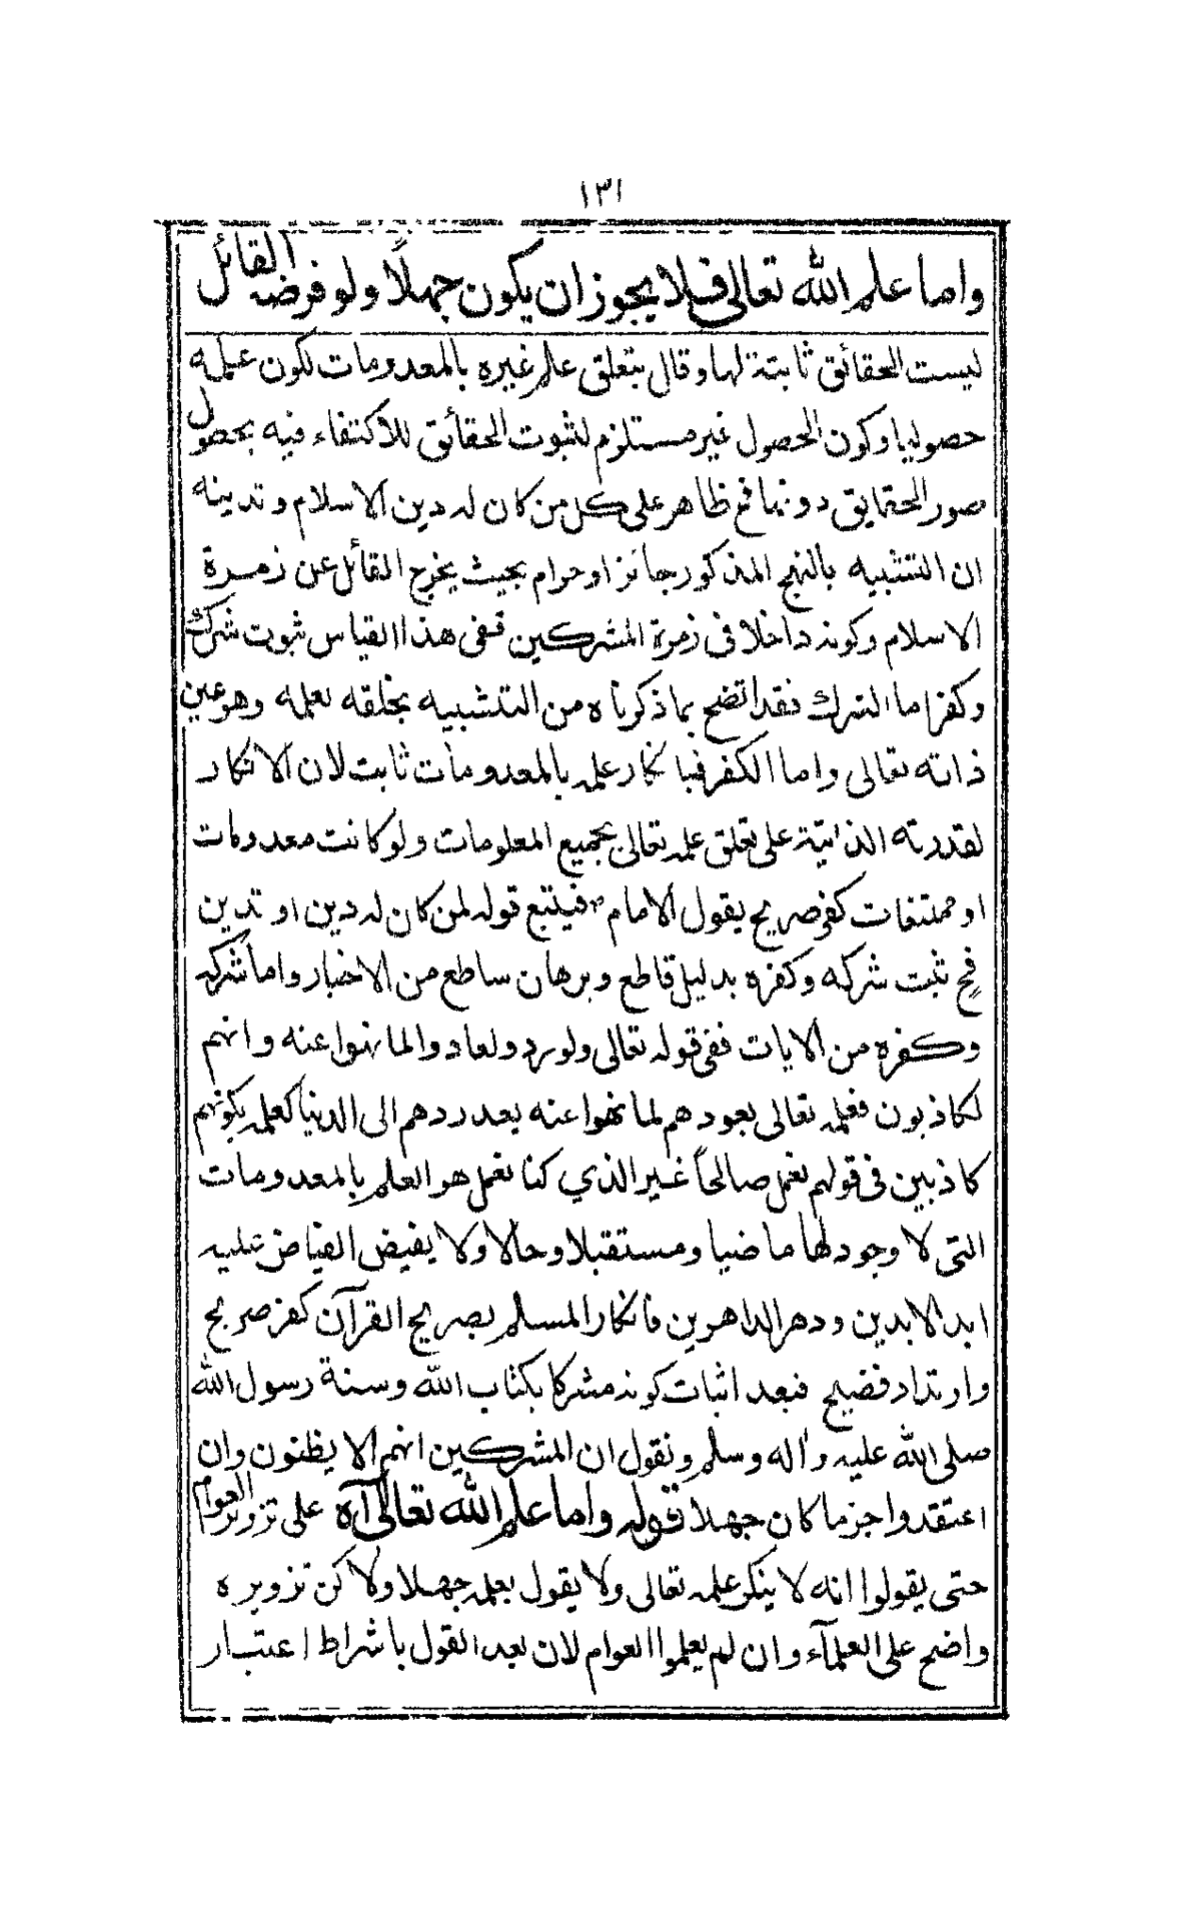 ١٣١
واما علم الله تعالى فلا يجوز ان يكون جهلًا ولو فرضه القائل
ليست الحقائق ثابتة لها وقال بتعلق علم غيره بالمعدومات لكون علمه
حصوليا وكون الحصول غير مستلزم لثبوت الحقائق للاكتفاء فيه بحصول
صور الحقايق دونها فح ظاهر على كل من كان له دين الاسلام وتدينه
ان التشبيه بالنهج المذكور جائز او حرام بحيث يخرج القائل عن زمرة
الاسلام وكونه داخلا في زمرة المشركين ففى هذا القياس ثبوت شرك
وكفر اما الشرك فقد اتضح بما ذكرناه من التشبيه بخلقه بعلمه وهو عين
ذاته تعالى واما الكفر فبانكار علمه بالمعدومات ثابت لان الانكار
لقدرته الذاتية على تعلق علمه تعالى بجميع المعلومات ولو كانت معدومات
او ممتنعات كفر صريح بقول الامام ؑ فيتبع قوله لمن كان له دين او تدين
فح ثبت شركه وكفره بدليل قاطع وبرهان ساطع من الاخبار واما شركه
وكفره من الايات ففى قوله تعالى ولو ردوا لعادوا لما نهوا عنه وانهم
لكاذبون فعلمه تعالى بعودهم لما نهوا عنه بعد ردهم الى الدنيا كعلمه بكونهم
كاذبين فى قولهم نعمل صالحاً غير الذي كنا نعمل هو العلم بالمعدومات
التى لا وجود لها ماضيا ومستقبلا وحالا ولا يفيض الفياض عليه
ابد الابدين ودهر الداهرين فانكار المسلم بصريح القرآن كفر صريح
وارتداد فضيح فبعد اثبات كونه مشركا بكتاب الله وسنة رسول الله
صلى الله عليه واله وسلم ونقول ان المشركين انهم الا يظنون وان
اعتقدوا جزما كان جهلا قوله واما علم الله تعالى آه على تزوير العوام
حتى يقولوا انه لا ينكر علمه تعالى ولا يقول بعلمه جهلا ولاكن تزويره
واضح على العلمآء وان لم يعلموا العوام لان بعد القول باشراط اعتبار